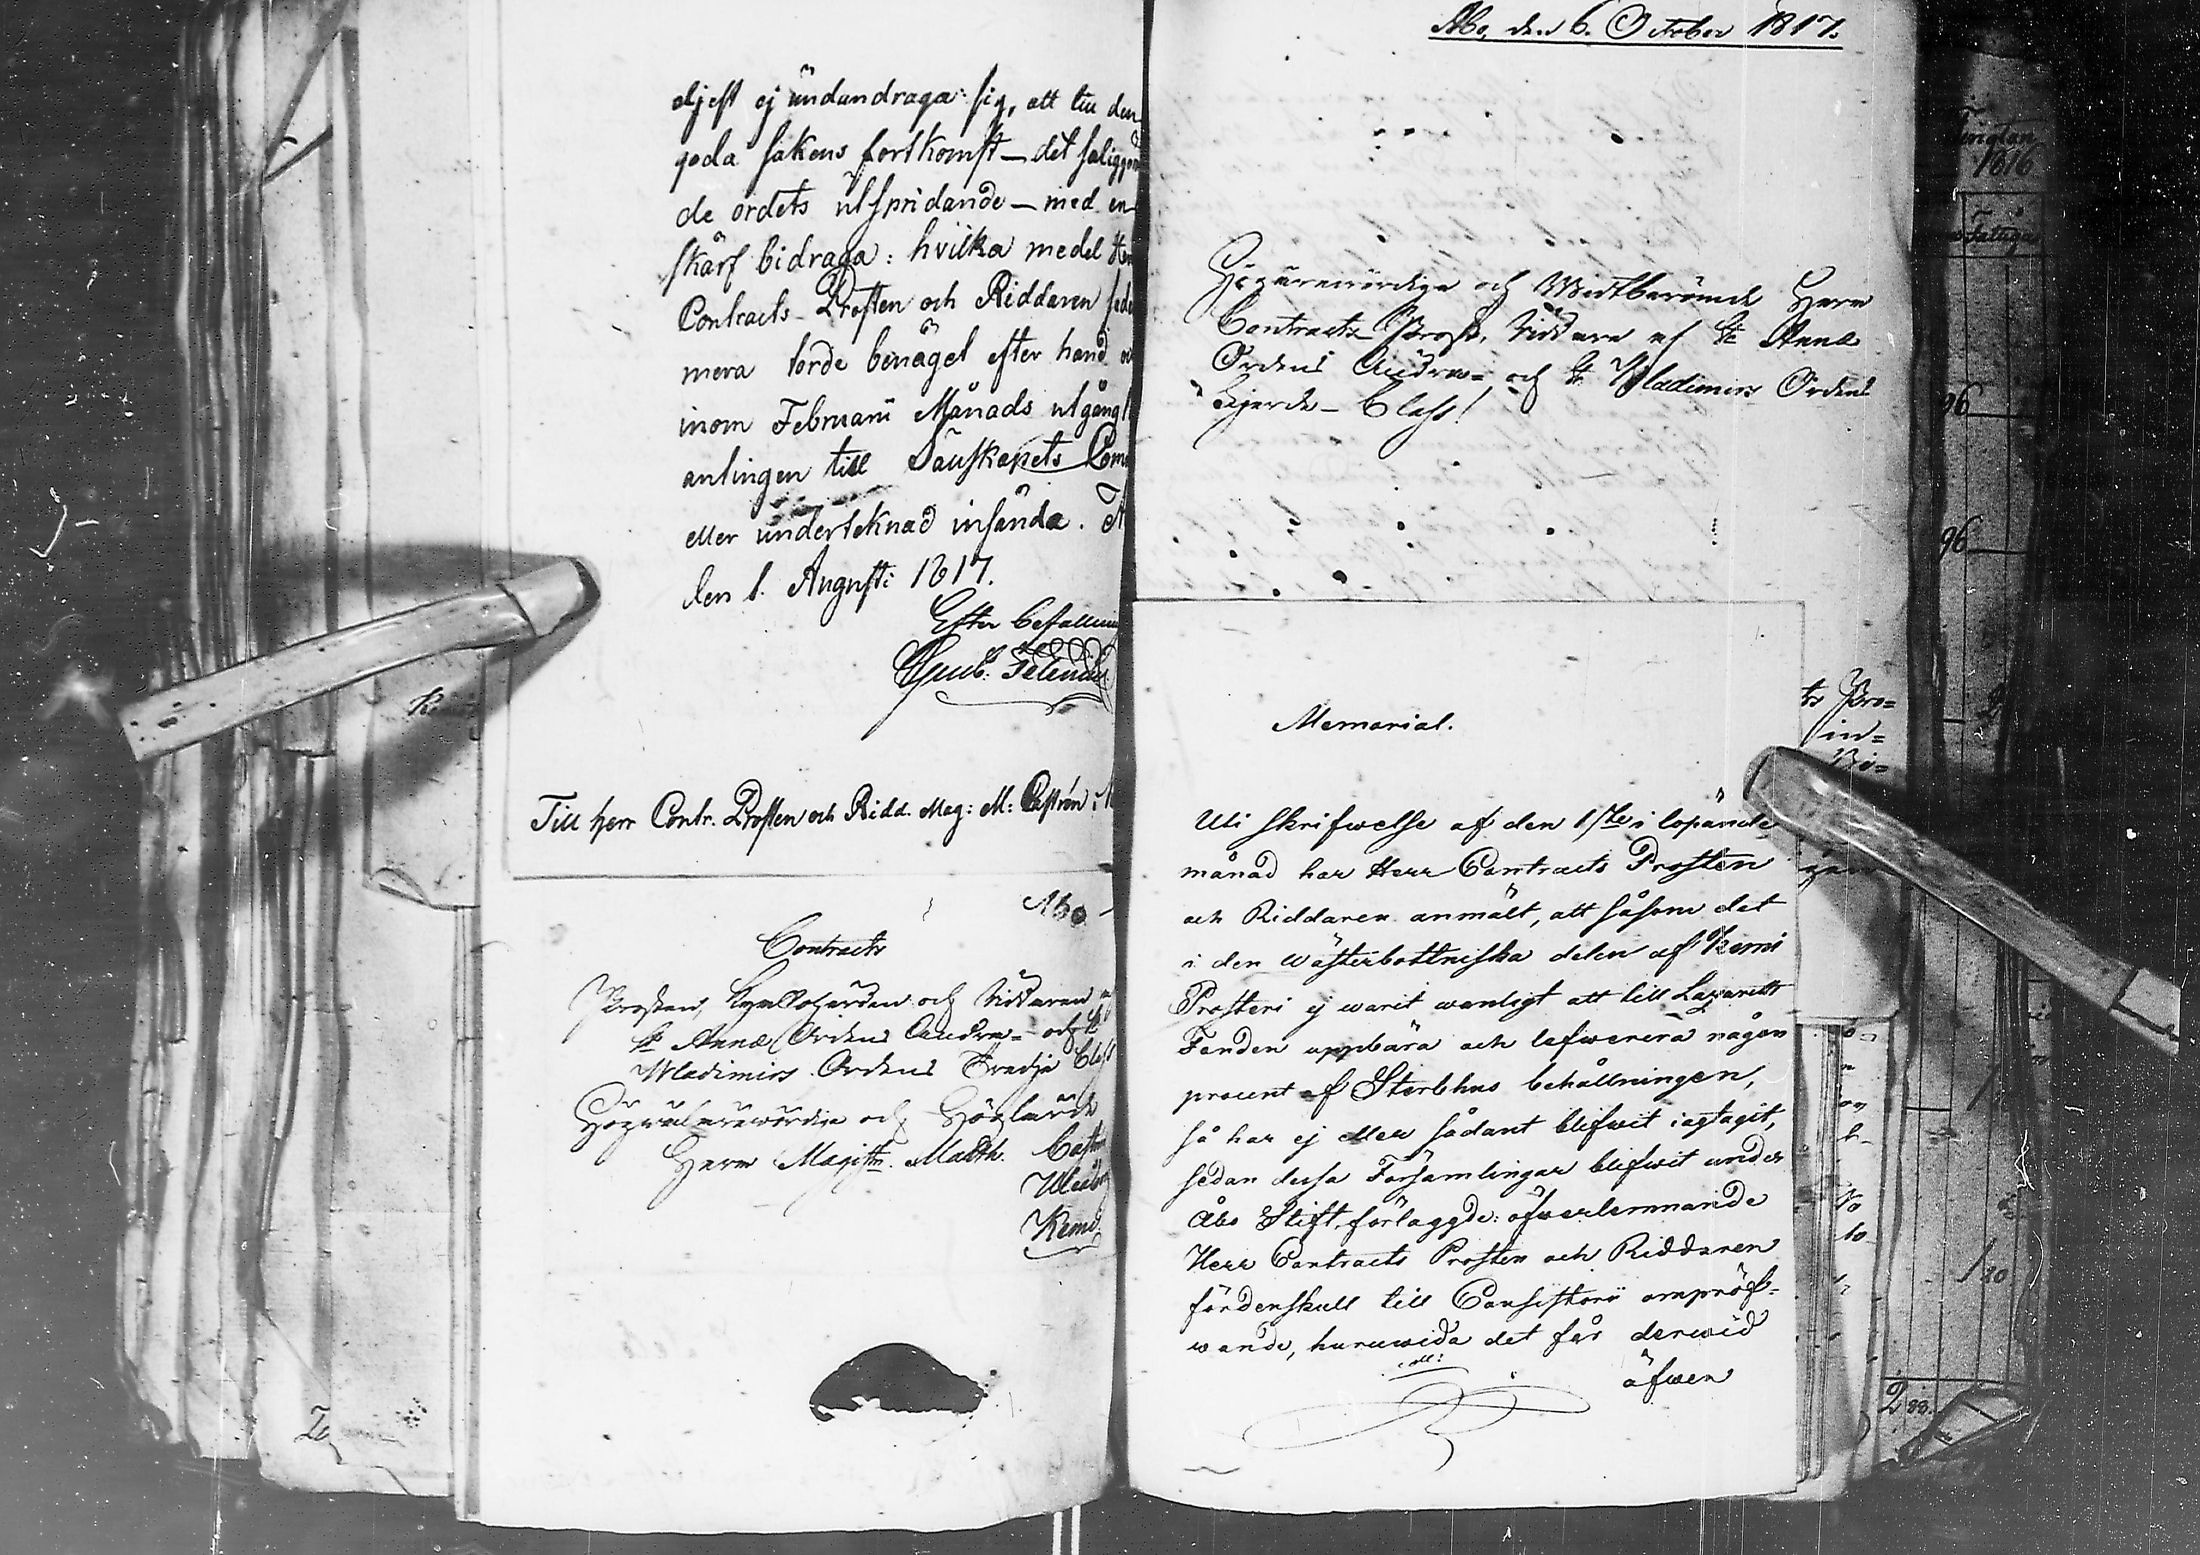 eljest ej undandraga sig, att till den
goda sakens fortkomst – det saliggöran
de ordets utspridande – med en
skärf bidraga: hvilka medel Herr
Contracts-Prosten och Riddaren
mera torde benäget efter hand
inom Februarii Månads utgång
antingen till Säuskapets Com
eller undertecknad insända.
den 1. Augusti 1817.
Efter befallning
Till herr Contr. Prosten och Ridd. Mag: M: Castrén i
Åbo
Contracts
Prosten, Kyrkoherden och Riddaren af
St Annæ Ordens Andra- och St
Wladimirs Ordens Tredje Class
Högvälärewördige och Höglärde
Herr Magistr. Matth. Castrén
Uleåborg
Kemi.
Åbo, den 6. October 1817.
Högärewördige och Widtberömde Herr
Contracts Prost, Riddare af St Annæ
Ordens Andra- och St Wladimirs Ordens
Fjerde-Class!
Memorial.
Uti skrifwelse af den 1ste i löpande
månad har Herr Contracts Prosten
och Riddaren anmält, att såsom det
i den wästerbottniska delen af Kemi
Prosteri ej warit wanligt att till Lazaretts
Fonden uppbära och lefwerera någon
procent af Sterbhus behållningen,
så har ej eller sådant blifwit iagtagit,
sedan dessa Församlingar blifwit under
Åbo Stift förlaggde: öfwerlemnande
Herr Contracts Prosten och Riddaren
fördenskull till Consistorii ompröf-
wande, huruwida det får derwid
äfwen